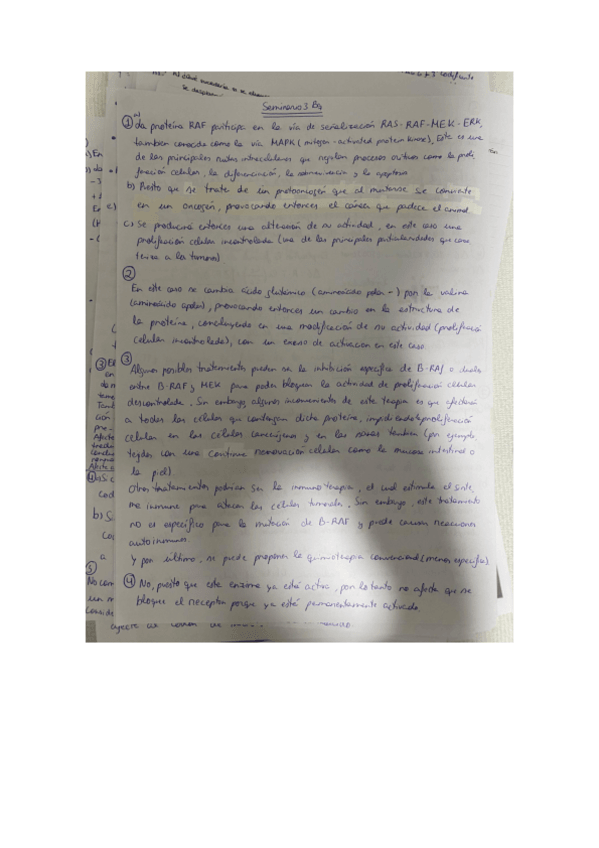 Seminario 3 Bq
① a) La proteína RAF participa en la vía de señalización RAS-RAF-MEK-ERK,
también conocida como la vía MAPK (mitogen-activated protein kinase). Esta es una
de las principales rutas intracelulares que regulan procesos críticos como la proli
feración celular, la diferenciación, la supervivencia y la apoptosis
b) Puesto que se trata de un protooncogén que al mutarse se convierte
en un oncogén, provocando entonces el cáncer que padece el animal
c) Se producirá entonces una alteración de su actividad, en este caso una
proliferación celular incontrolada (una de las principales particularidades que carac
teriza a los tumores).
②
En este caso se cambia ácido glutámico (aminoácido polar -) por la valina
(aminoácido apolar), provocando entonces un cambio en la estructura de
la proteína, concluyendo en una modificación de su actividad (proliferació
celular incontrolada), con un exceso de activación en este caso.
③
Algunos posibles tratamientos pueden ser la inhibición específica de B-RAF o duales
entre B-RAF y MEK para poder bloquear la actividad de proliferación celular
descontrolada. Sin embargo, algunos inconvenientes de esta terapia es que afectaría
a todas las células que contengan dicha proteína, impidiendo la proliferación
celular en las células cancerígenas y en las sanas también (por ejemplo
tejidos con una continua renovación celular como la mucosa intestinal o
la piel).
Otros tratamientos podrían ser la inmunoterapia, el cual estimula el siste
ma inmune para atacar las células tumorales. Sin embargo, este tratamiento
no es específico para la mutación de B-RAF y puede causar reacciones
autoinmunes.
Y por último, se puede proponer la quimioterapia convencional (menos específica).
④ No, puesto que esta enzima ya está activa, por lo tanto no afecta que se
bloquee el receptor porque ya está permanentemente activada.